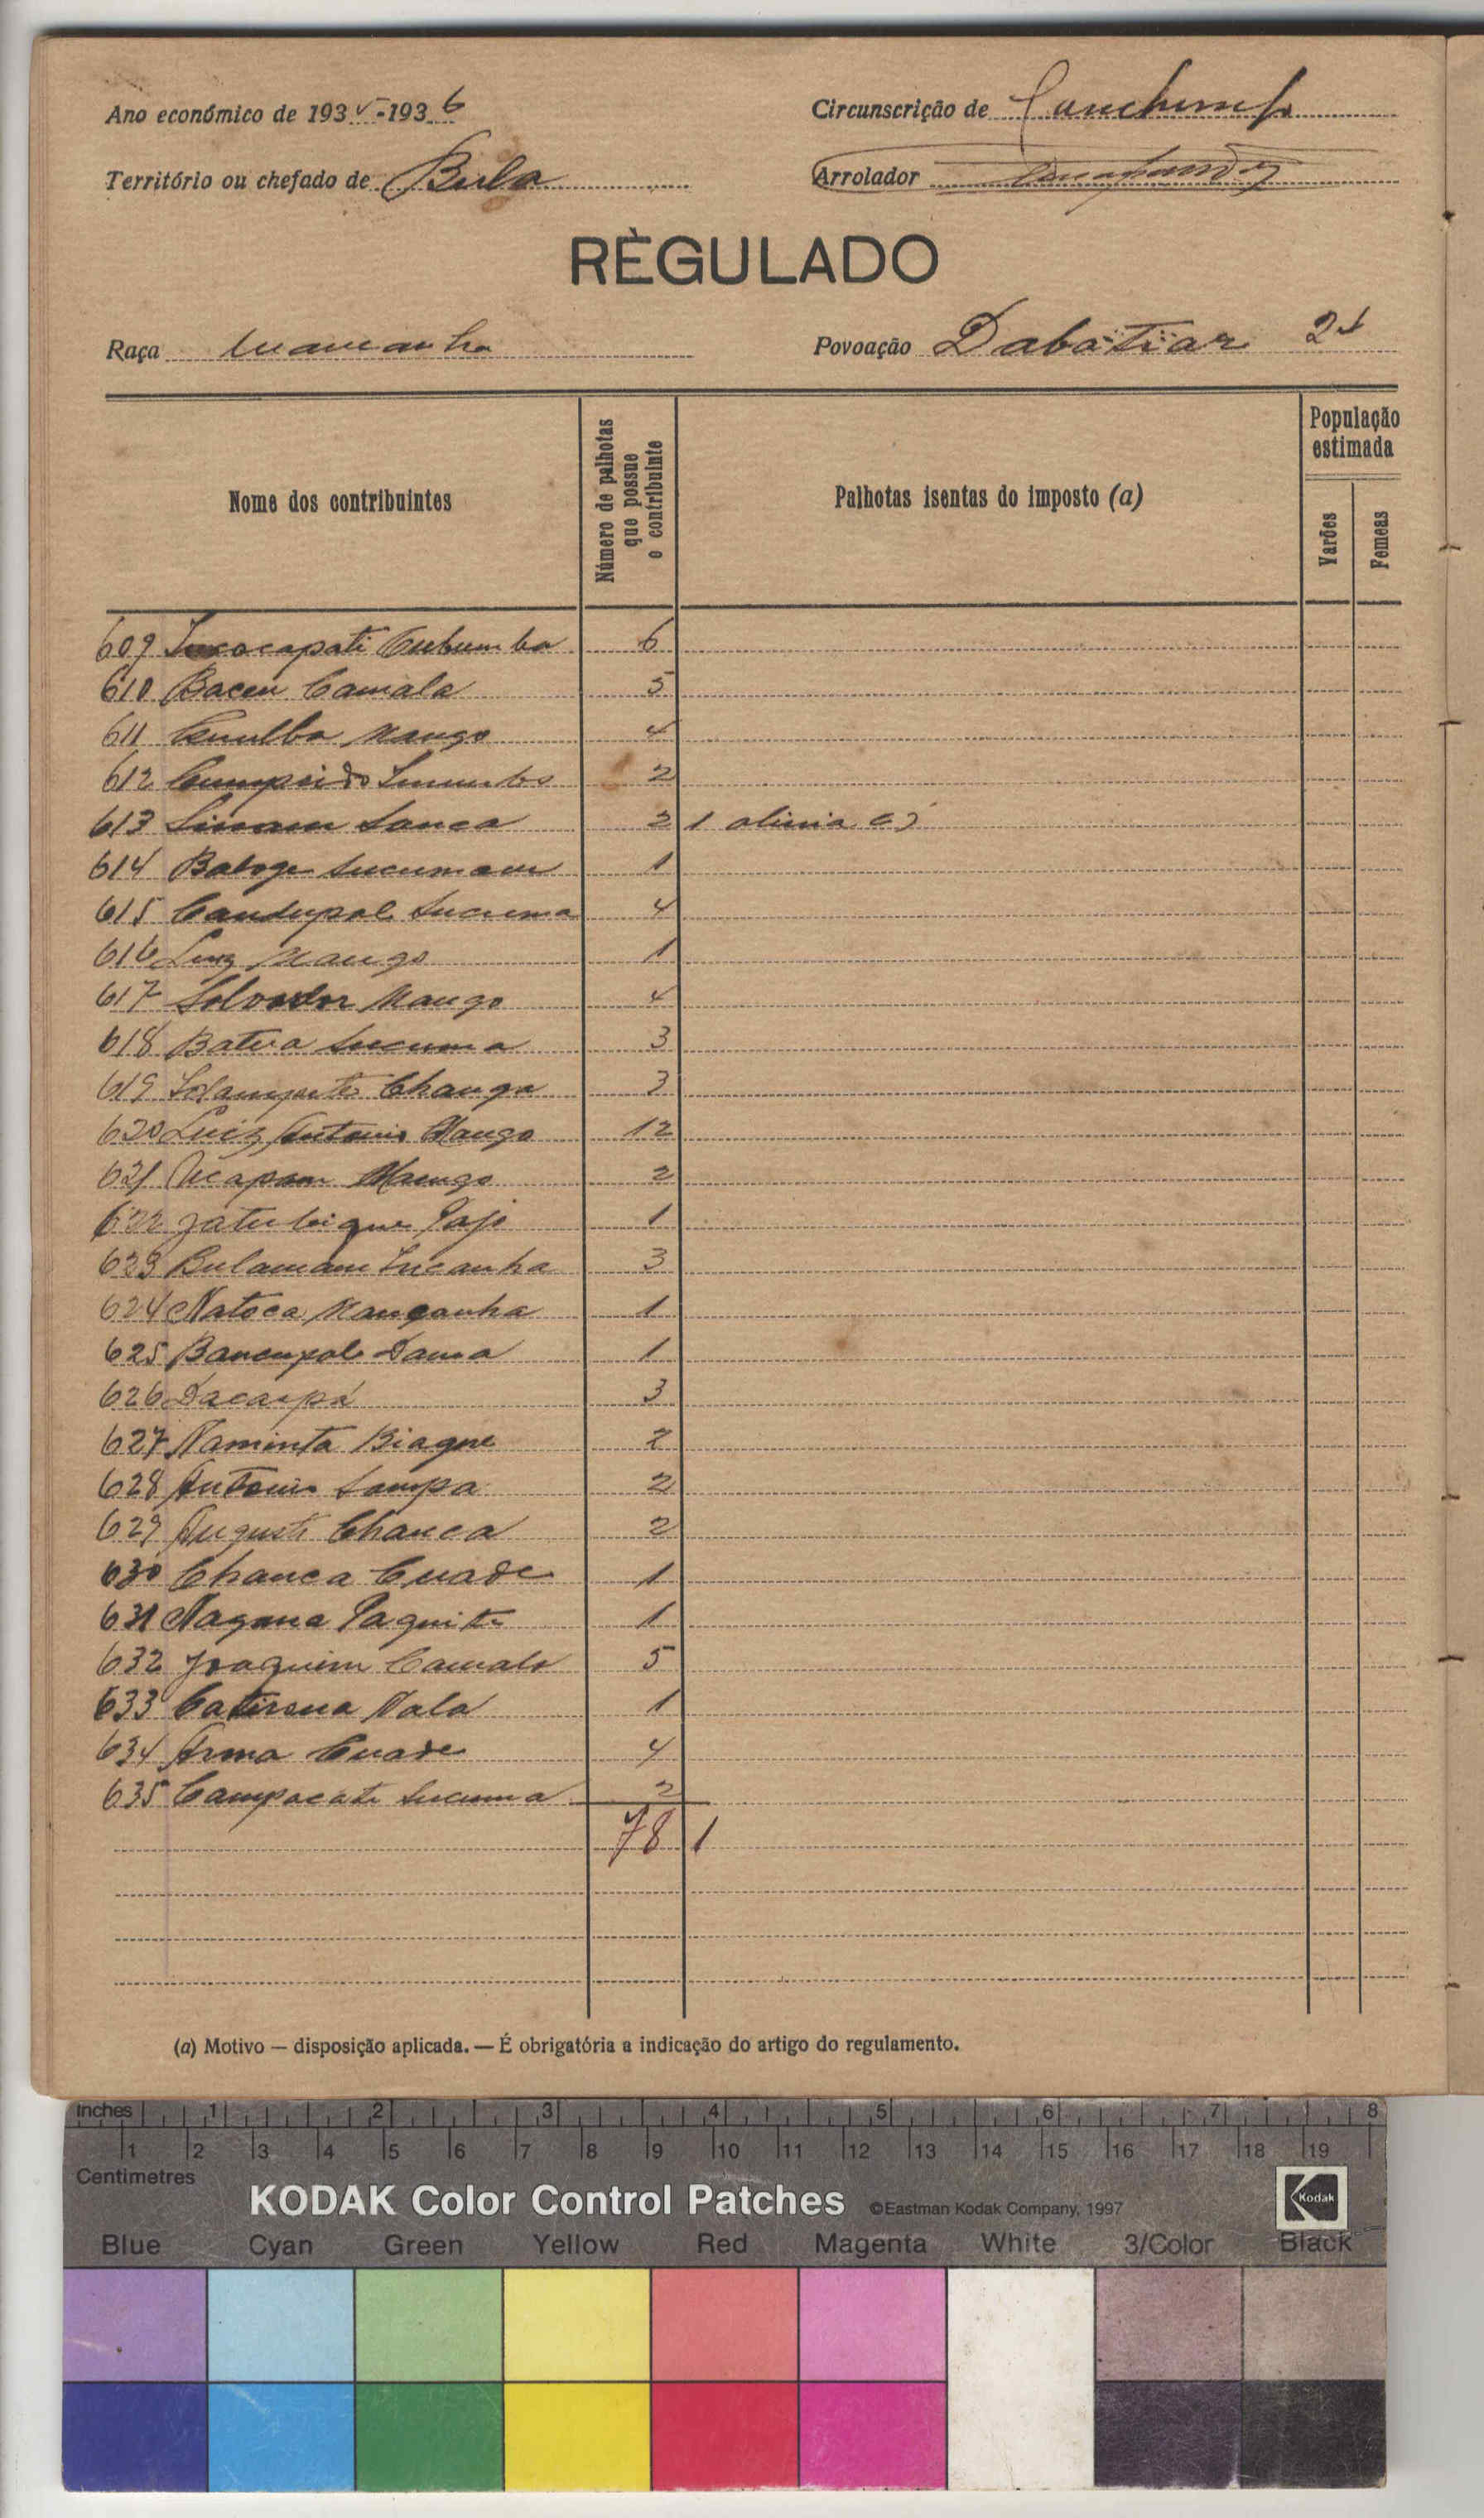 Ano económico de 1935-1936
Circunscrição de Canchungo
Território ou chefado de Bula
Arrolador
RÈGULADO
Raça mancanha
Povoação Dabatiar 2ª
Nome dos contribuintes
Número de palhotas que possue o contribuinte
Palhotas isentas do imposto (a)
População estimada
Varões
Femeas
609 Cubumba 6
610 Baceu Camala 5
611 Mango 4
612 2
613 Sanca 2 1 alinia c)
614 Batoge 1
615 Sucuma 4
616 Luiz Mango 1
617 Salvador Mango 4
618 Batua Sucuma 3
619 Changa 3
620 Luiz Antonio Mango 12
621 Ucapam Mango 2
622 Jatubique Pajo 1
623 Bulamam Incanha 3
624 Natoca Mancanha 1
625 Bancupole Dama 1
626 Dacaipá 3
627 Naminta Biague 2
628 Antonio Sampa 2
629 Augusto Chanca 2
630 Chanca Cuade 1
631 Nagana Paquite 1
632 Joaquim Camala 5
633 Catirena Nala 1
634 Arma Cuade 4
635 Campacate Sucuma 2
78 1
(a) Motivo — disposição aplicada. — É obrigatória a indicação do artigo do regulamento.
inches 1 2 3 4 5 6 7 8
1 2 3 4 5 6 7 8 9 10 11 12 13 14 15 16 17 18 19
Centimetres
KODAK Color Control Patches ©Eastman Kodak Company, 1997 Kodak
Blue Cyan Green Yellow Red Magenta White 3/Color Black